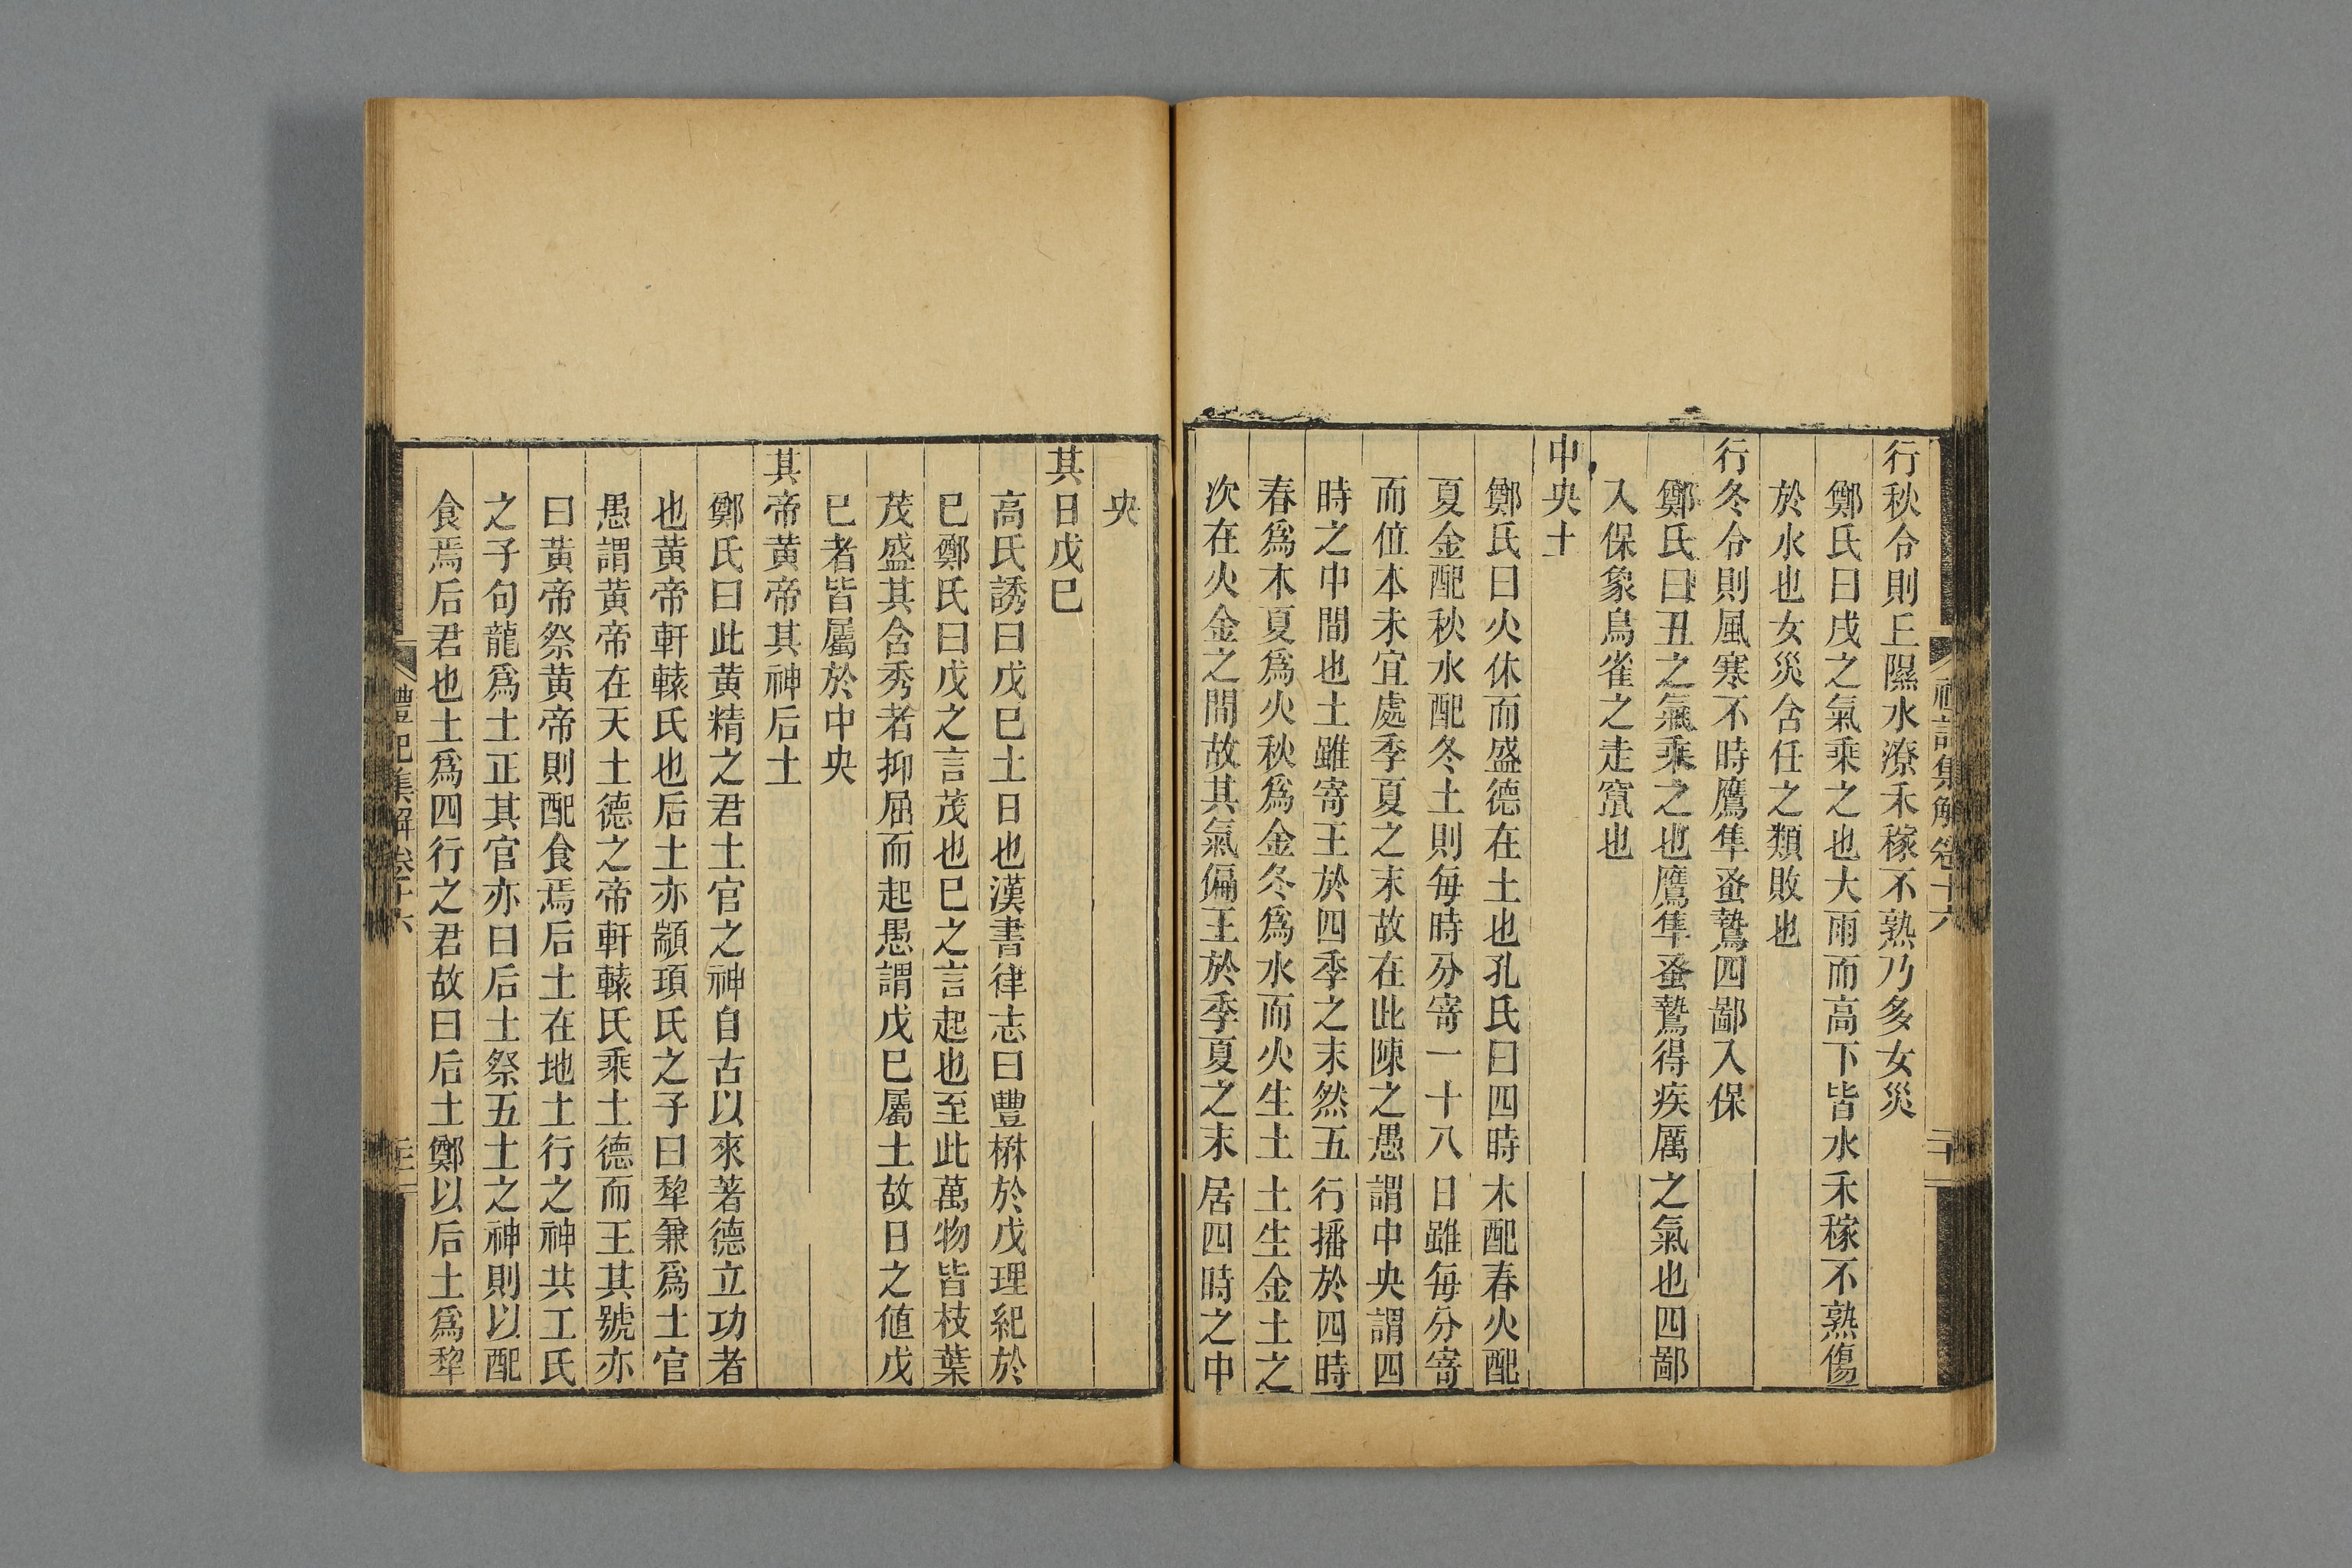 行秋令則丘隰水潦禾稼不熟乃多女災
鄭氏曰戌之氣乘之也大雨而高下皆水禾稼不熟傷
於水也女災含任之類敗也
行冬令則風寒不時鷹隼蚤鷙四鄙入保
鄭氏曰丑之氣乘之也鷹隼蚤鷙得疾厲之氣也四鄙
入保象鳥雀之走竄也
中央土
鄭氏曰火休而盛德在土也孔氏曰四時木配春火配
夏金配秋水配冬土則每時分寄一十八日雖每分寄
而值本未宜處季夏之末故在此陳之愚謂中央謂四
時之中間也土雖寄王於四季之末然五行播於四時
春爲木夏爲火秋爲金冬爲水而火生土土生金土之
次在火金之間故其氣偏王於季夏之末居四時之中
央
其日戊巳
高氏誘曰戊巳土日也漢書律志曰豐楙於戊理紀於
巳鄭氏曰戊之言茂也巳之言起也至此萬物皆枝葉
茂盛其含秀者抑屈而起愚謂戊巳屬土故日之値戊
巳者皆屬於中央
其帝黄帝其神后土
鄭氏曰此黄精之君土官之神自古以來著德立功者
也黄帝軒轅氏也后土亦顓頊氏之子曰犂兼爲土官
愚謂黄帝在天土德之帝軒轅氏乘土德而王其號亦
曰黄帝祭黄帝則配食焉后土在地土行之神共工氏
之子句龍爲土正其官亦曰后土祭五土之神則以配
食焉后君也土爲四行之君故曰后土鄭以后土爲犂
禮記集解卷十六